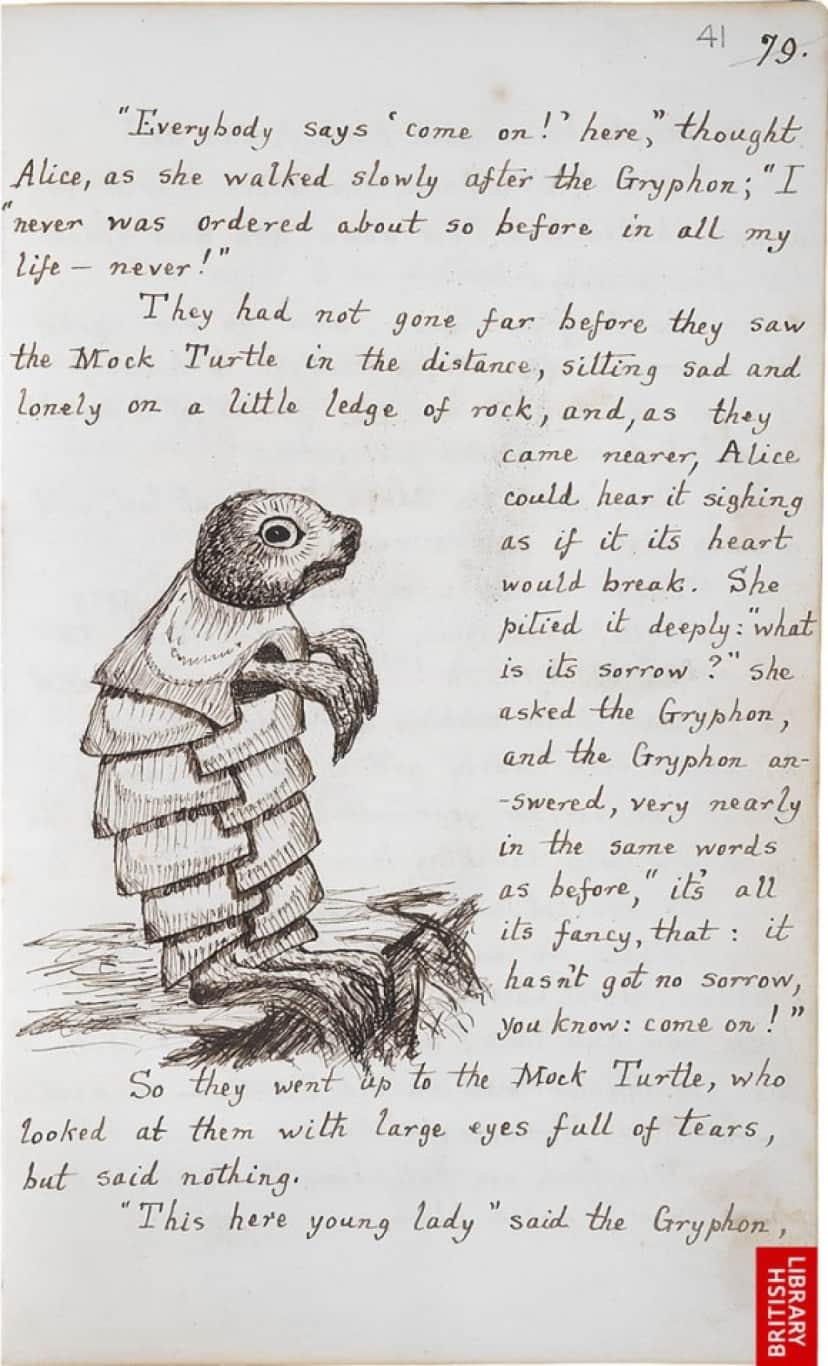 41 79.
"Everybody says 'come on!' here," thought
Alice, as she walked slowly after the Gryphon; "I
"never was ordered about so before in all my
life — never!"
They had not gone far before they saw
the Mock Turtle in the distance, sitting sad and
lonely on a little ledge of rock, and, as they
came nearer, Alice
could hear it sighing
as if it its heart
would break. She
pitied it deeply: "what
is its sorrow?" she
asked the Gryphon,
and the Gryphon an-
-swered, very nearly
in the same words
as before, "it's all
its fancy, that: it
hasn't got no sorrow,
you know: come on!"
So they went up to the Mock Turtle, who
looked at them with large eyes full of tears,
but said nothing.
"This here young lady" said the Gryphon,
BRITISH
LIBRARY